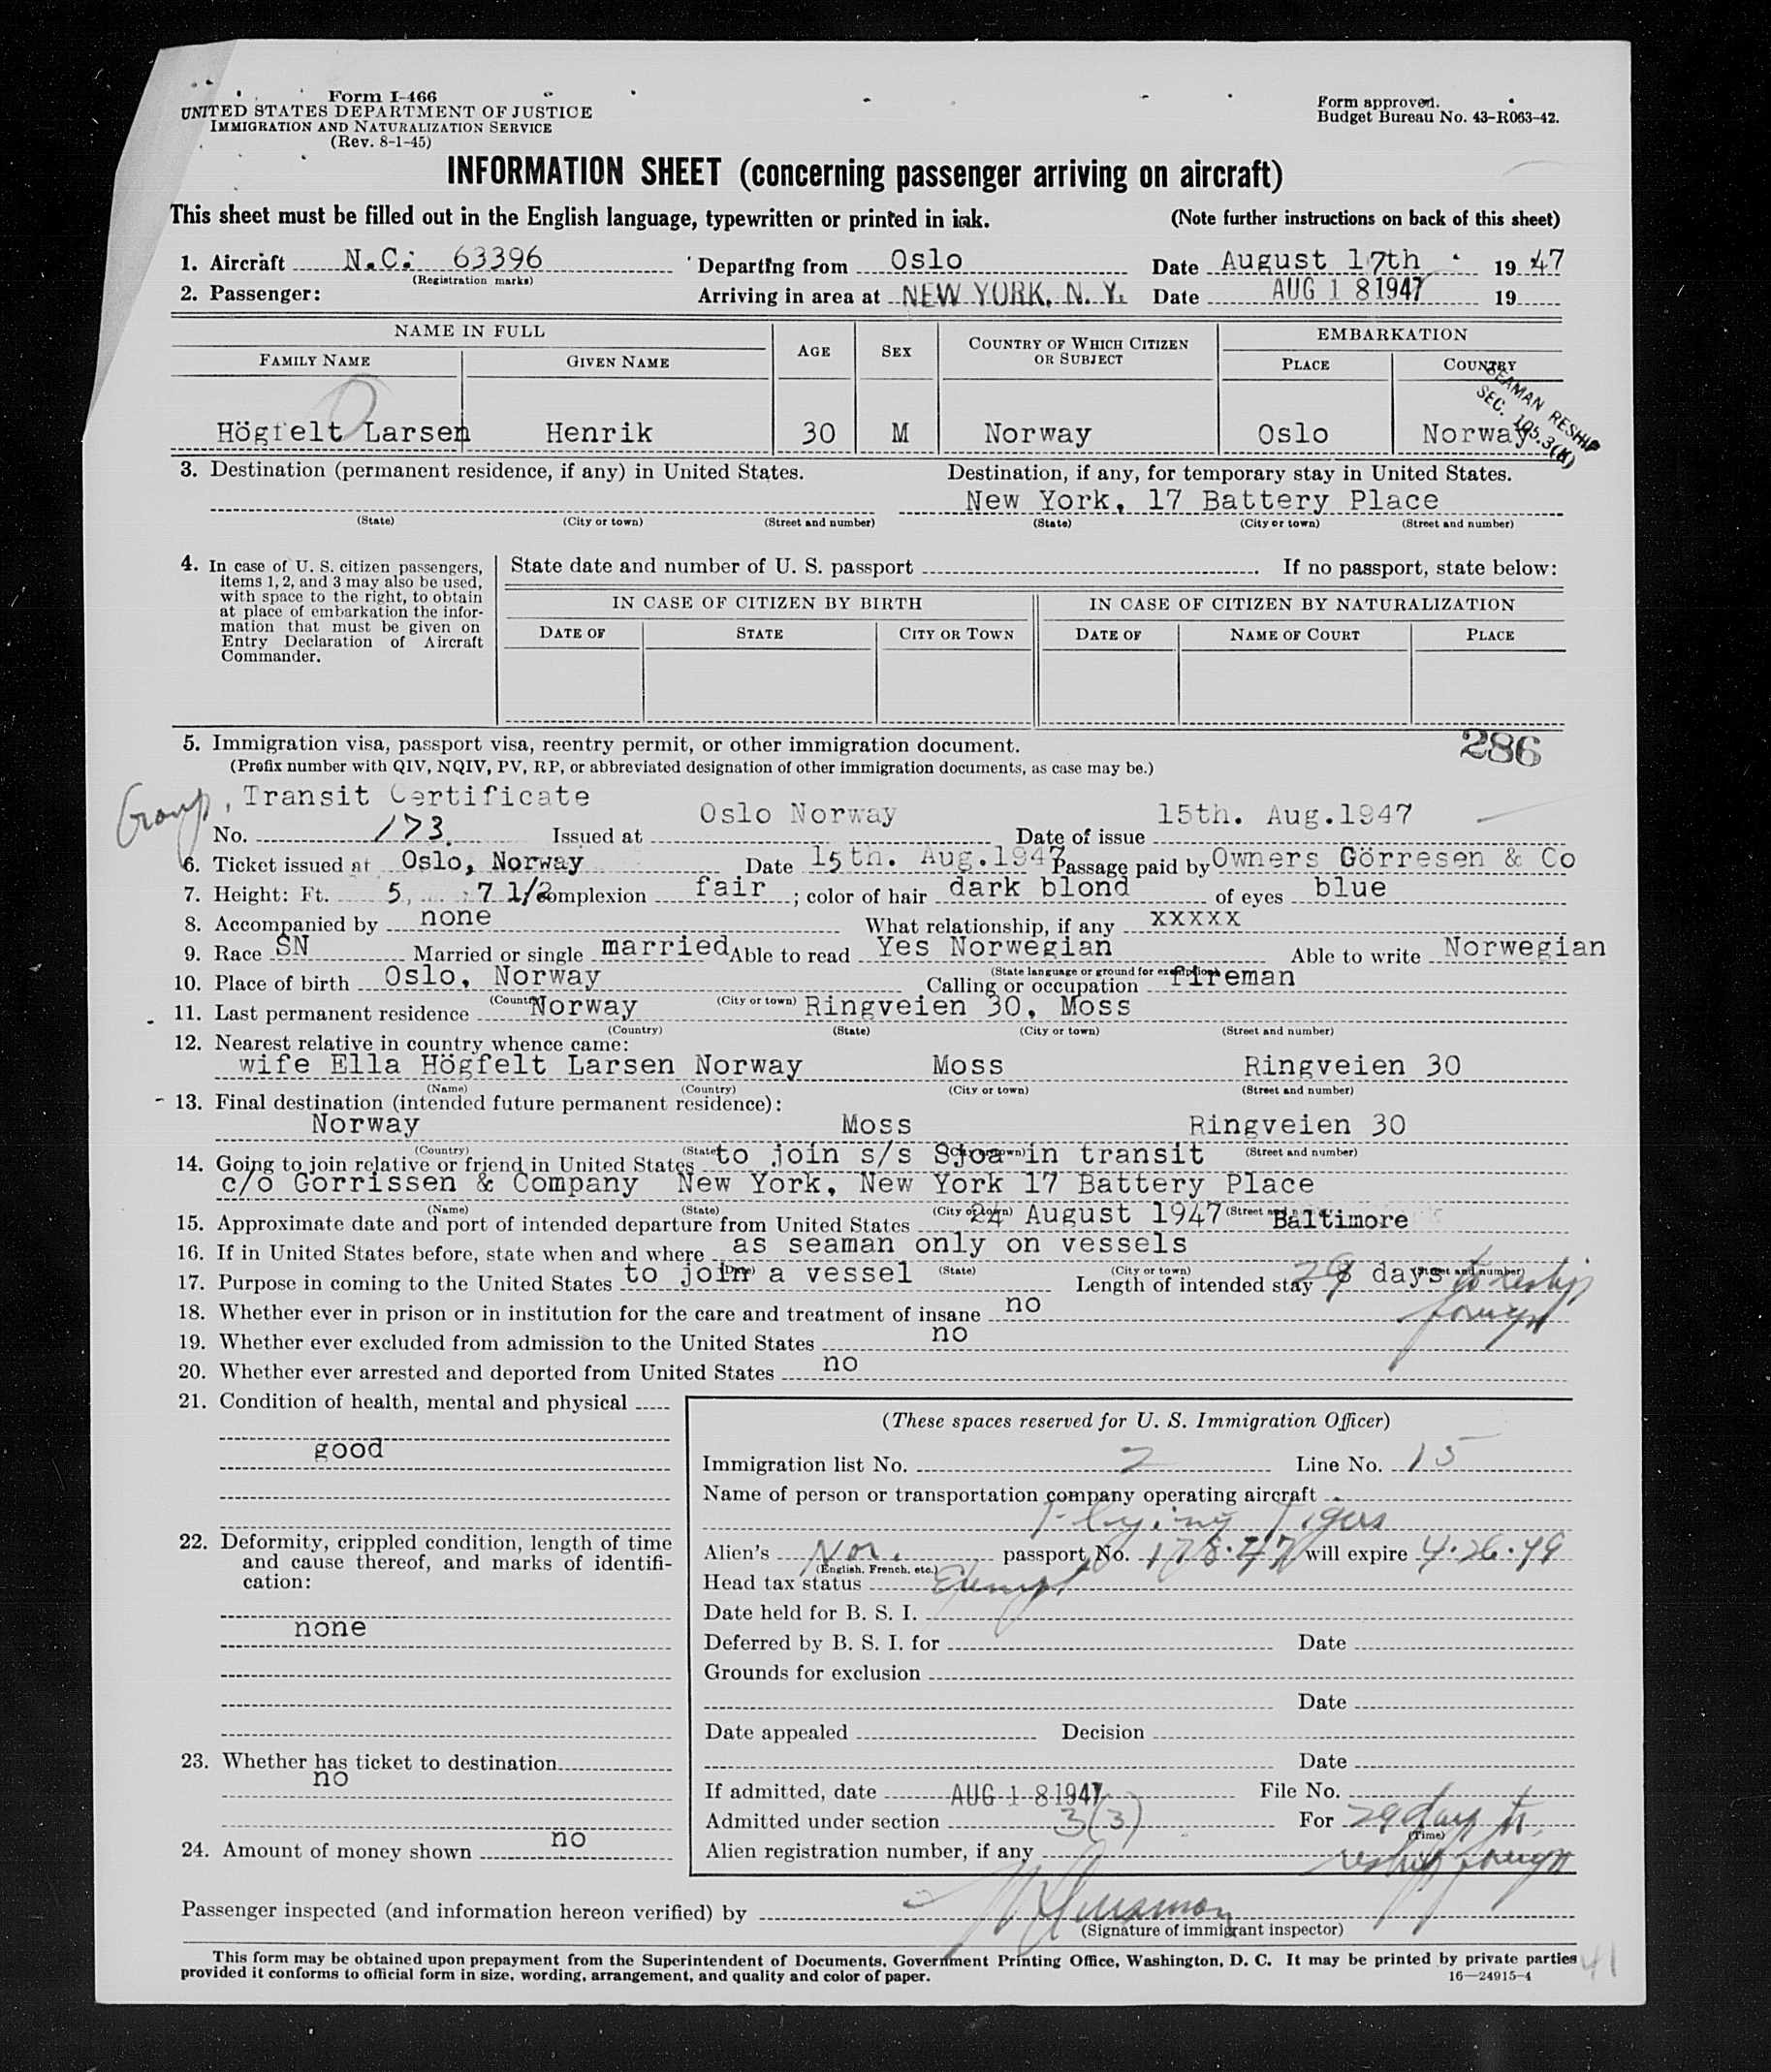 Form I-466
UNITED STATES DEPARTMENT OF JUSTICE
IMMIGRATION AND NATURALIZATION SERVICE
(Rev. 8-1-45)
Form approved.
Budget Bureau No. 43-R063-42.
INFORMATION SHEET (concerning passenger arriving on aircraft)
This sheet must be filled out in the English language, typewritten or printed in ink. (Note further instructions on back of this sheet)
1. Aircraft N.C. 63396 Departing from Oslo Date August 17th 19 47
(Registration marks)
2. Passenger: Arriving in area at NEW YORK, N. Y. Date AUG 18 1947 19
NAME IN FULL AGE SEX COUNTRY OF WHICH CITIZEN OR SUBJECT EMBARKATION
FAMILY NAME GIVEN NAME PLACE COUNTRY
SEAMAN RESHIP
SEC. 105.3(H)
Högfelt Larsen Henrik 30 M Norway Oslo Norway
3. Destination (permanent residence, if any) in United States. Destination, if any, for temporary stay in United States.
New York, 17 Battery Place
(State) (City or town) (Street and number) (State) (City or town) (Street and number)
4. In case of U. S. citizen passengers, items 1, 2, and 3 may also be used, with space to the right, to obtain at place of embarkation the information that must be given on Entry Declaration of Aircraft Commander.
State date and number of U. S. passport If no passport, state below:
IN CASE OF CITIZEN BY BIRTH IN CASE OF CITIZEN BY NATURALIZATION
DATE OF STATE CITY OR TOWN DATE OF NAME OF COURT PLACE
286
5. Immigration visa, passport visa, reentry permit, or other immigration document.
(Prefix number with QIV, NQIV, PV, RP, or abbreviated designation of other immigration documents, as case may be.)
Group, Transit Certificate
No. 173 Issued at Oslo Norway Date of issue 15th. Aug.1947
6. Ticket issued at Oslo, Norway Date 15th. Aug.1947 Passage paid by Owners Görresen & Co
7. Height: Ft. 5, 7 1/2 Complexion fair ; color of hair dark blond of eyes blue
8. Accompanied by none What relationship, if any xxxxx
9. Race SN Married or single married Able to read Yes Norwegian Able to write Norwegian
(State language or ground for exemption)
10. Place of birth Oslo, Norway Calling or occupation fireman
(Country) (City or town)
11. Last permanent residence Norway Ringveien 30, Moss
(Country) (State) (City or town) (Street and number)
12. Nearest relative in country whence came:
wife Ella Högfelt Larsen Norway Moss Ringveien 30
(Name) (Country) (City or town) (Street and number)
13. Final destination (intended future permanent residence):
Norway Moss Ringveien 30
(Country) (State) (City or town) (Street and number)
14. Going to join relative or friend in United States to join s/s Sjoa in transit
c/o Gorrissen & Company New York, New York 17 Battery Place
(Name) (State) (City or town) (Street and number)
15. Approximate date and port of intended departure from United States 24 August 1947 Baltimore
16. If in United States before, state when and where as seaman only on vessels
(Date) (State) (City or town) (Street and number)
17. Purpose in coming to the United States to join a vessel Length of intended stay 29 days to reship
foreign
18. Whether ever in prison or in institution for the care and treatment of insane no
19. Whether ever excluded from admission to the United States no
20. Whether ever arrested and deported from United States no
21. Condition of health, mental and physical
good
22. Deformity, crippled condition, length of time and cause thereof, and marks of identification:
none
23. Whether has ticket to destination
no
24. Amount of money shown no
(These spaces reserved for U. S. Immigration Officer)
Immigration list No. 2 Line No. 15
Name of person or transportation company operating aircraft
Flying Tigers
Alien's Nor. passport No. 178.47 will expire 4.26.49
(English, French, etc.)
Head tax status Exempt
Date held for B. S. I.
Deferred by B. S. I. for Date
Grounds for exclusion
Date
Date appealed Decision
Date
If admitted, date AUG 18 1947 File No.
Admitted under section 3(3) For 29 days to
(Time)
Alien registration number, if any reship foreign
Passenger inspected (and information hereon verified) by
(Signature of immigrant inspector)
This form may be obtained upon prepayment from the Superintendent of Documents, Government Printing Office, Washington, D. C. It may be printed by private parties
provided it conforms to official form in size, wording, arrangement, and quality and color of paper. 16—24915-4
41